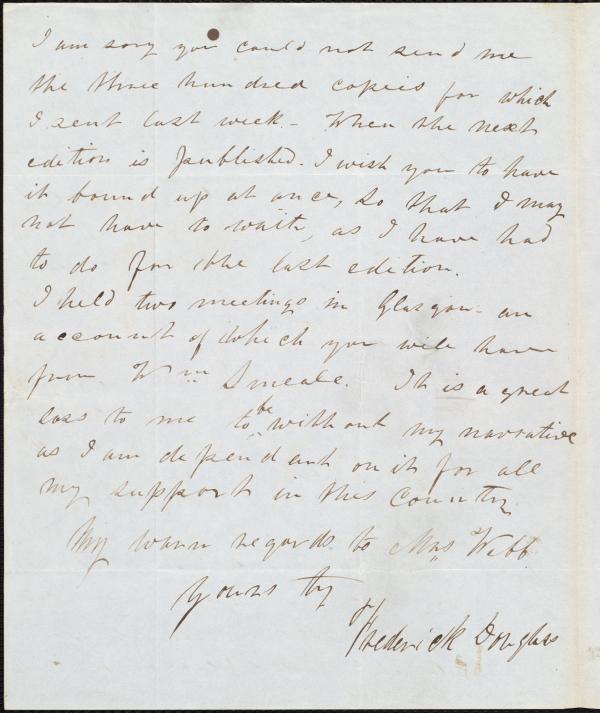 I am sory you could not send me
the three hundred copies for which
I sent last week - When the next
edition is published. I wish you to have
it bound up at once, so that I may
not have to waite, as I have had
to do for the last edition.
I held two meetings in Glasgow - an
account of which you will have
from Wm Smeale. It is a great
loss to me to be without my narrative
as I am dependent on it for all
my support in this country.
My warm regards to Mrs Webb
Yours try
Frederick Douglass